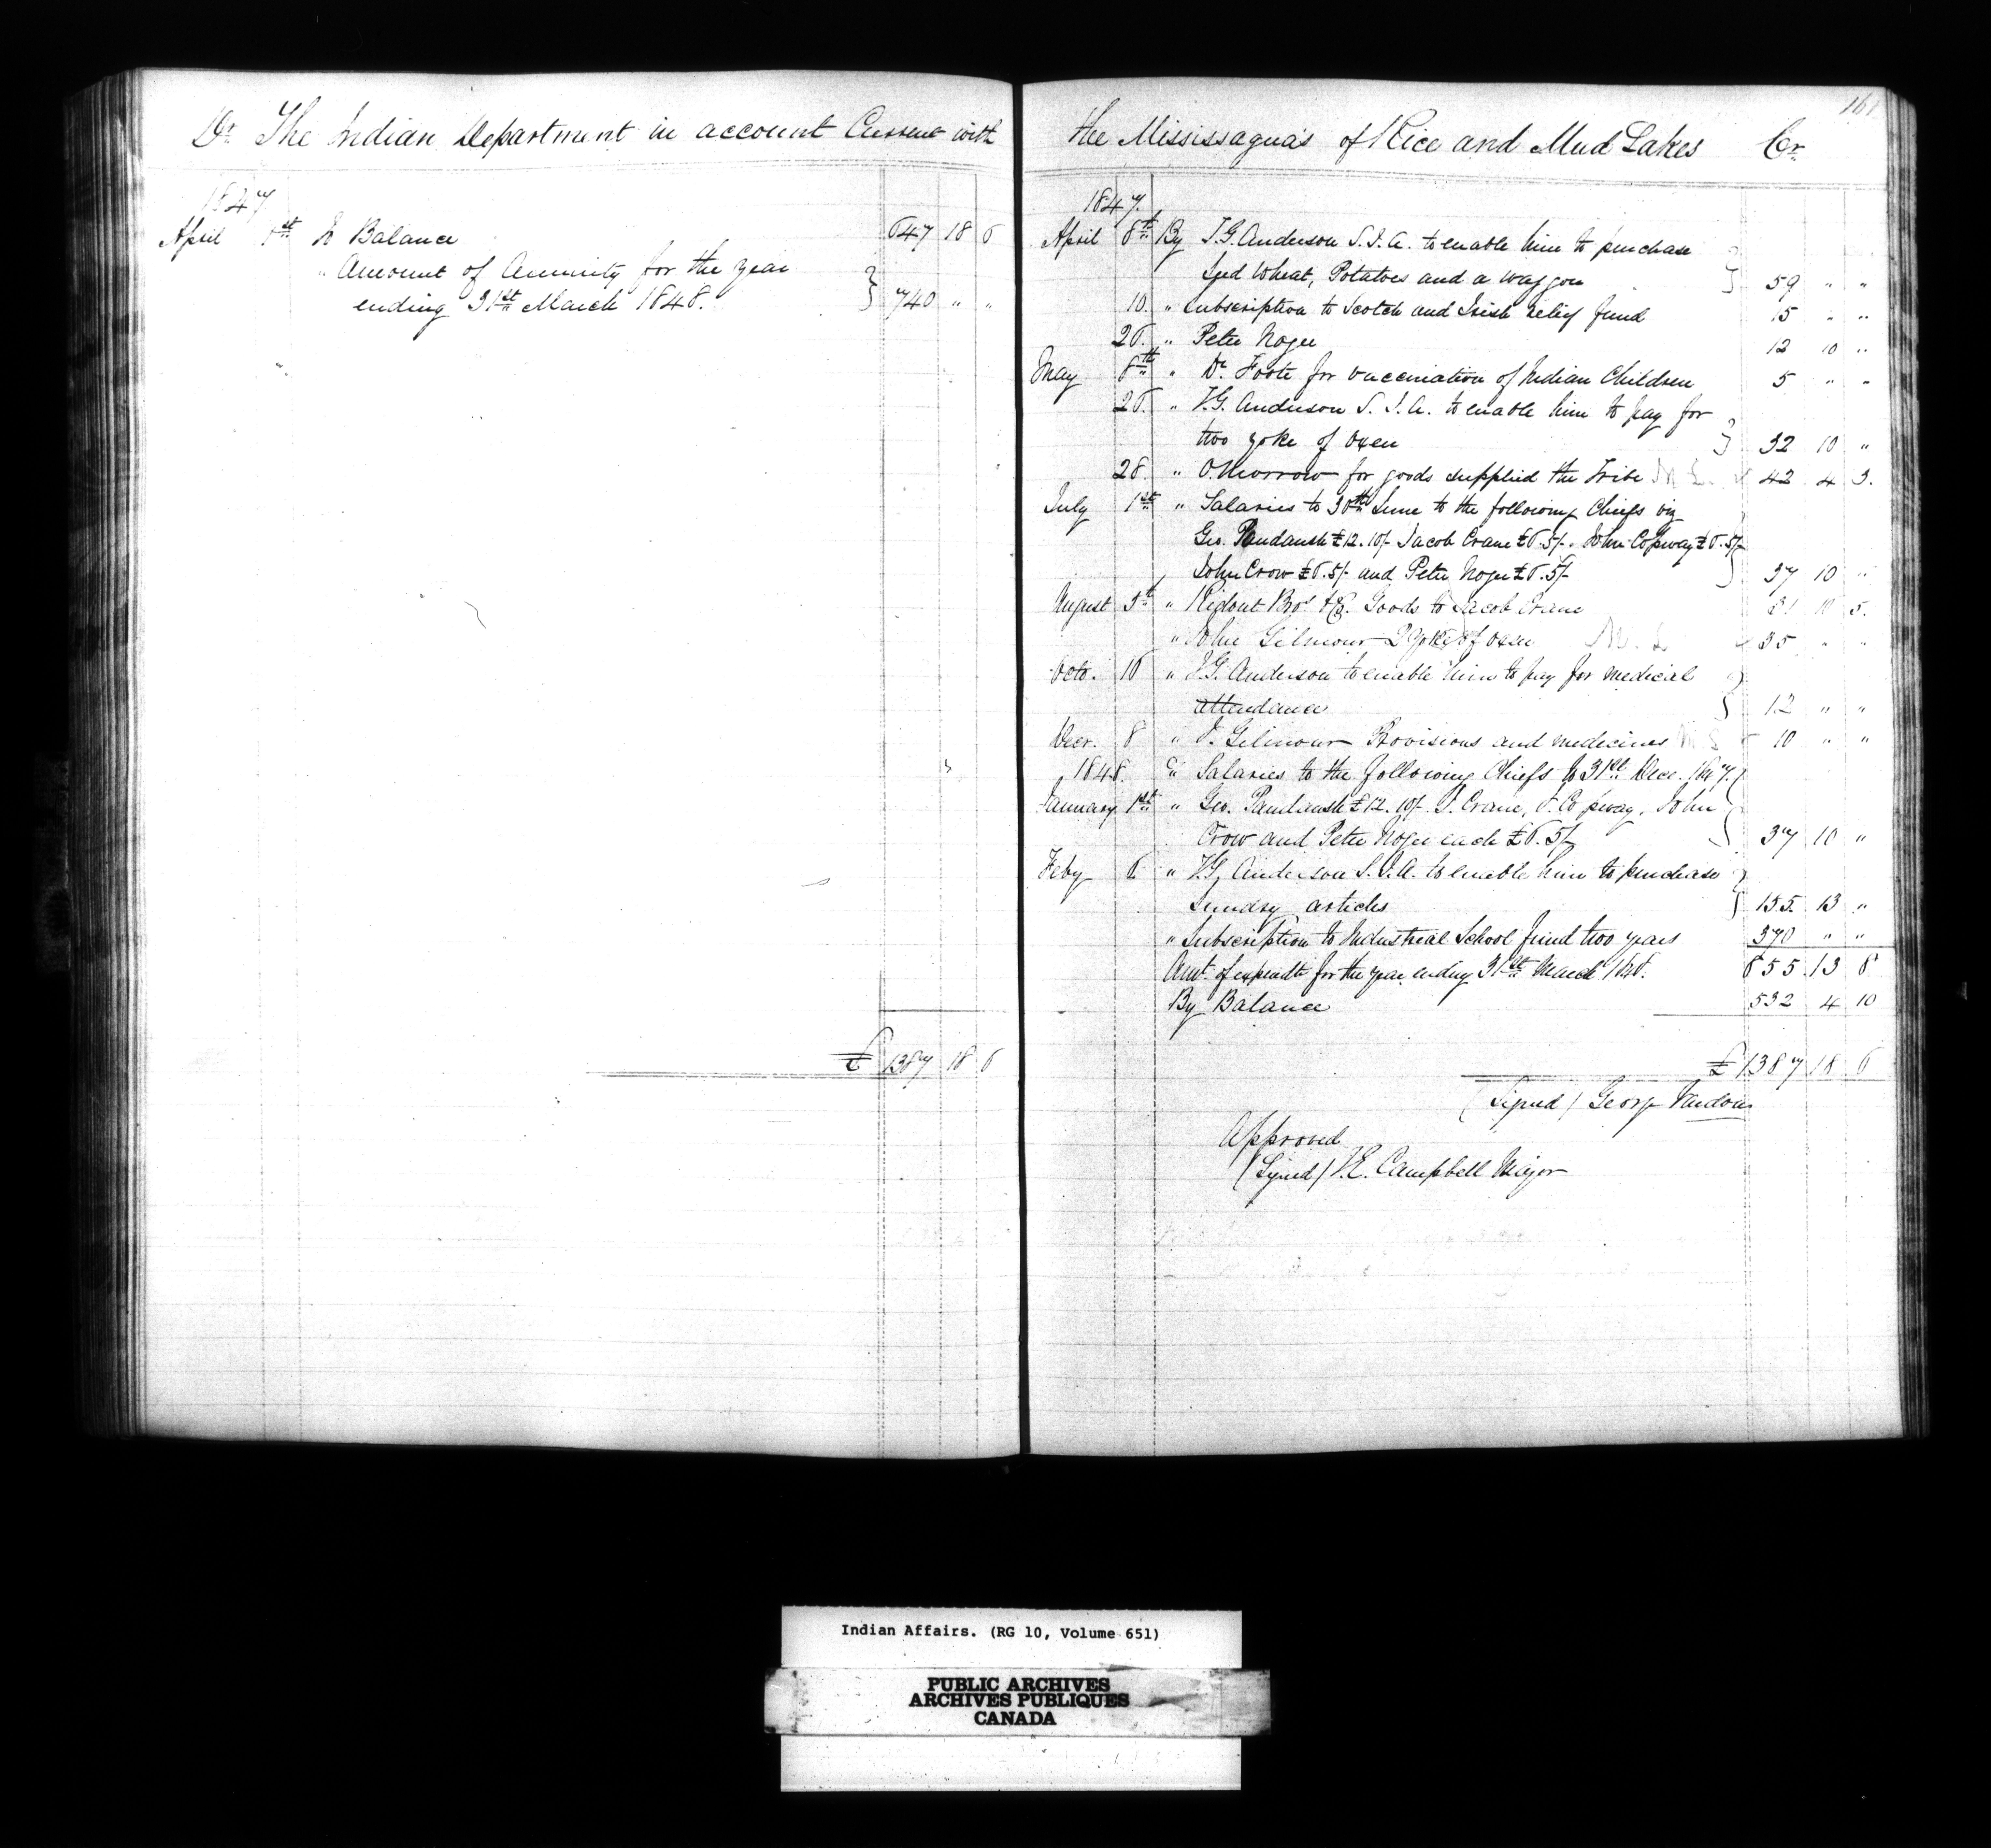 Dr The Indian Department in account Current with
1847
April 1st To Balance 647 18 6
" Amount of Annuity for the year
ending 31st March 1848. } 740 " "
£ 1387 18 6
161
the Mississagua's of Rice and Mud Lakes Cr
1847.
April 8th By T.G. Anderson S.I.A. to enable him to purchase
Seed Wheat, Potatoes and a waggon } 59 " "
10. " subscription to Scotch and Irish relief fund 15 " "
26. " Peter Nogee 12 10 "
May 8th " Dr. Foote for vaccination of Indian Children 5 " "
26. " T.G. Anderson S.I.A. to enable him to pay for
two yoke of Oxen } 32 10 "
28. " O. Morrow for goods supplied the Tribe M L 42 4 3.
July 1st " Salaries to 30th June to the following Chiefs viz
Geo. Paudaush £12.10/- Jacob Crane £6.5/-. John Copway £6.5/-
John Crow £6.5/- and Peter Nogee £6.5/- } 37 10 "
August 5th " Ridout Bros. & Co. Goods to Jacob Crane 31 16 5.
" John Gilmour 2 yoke of oxen M. L 35 " "
Octo. 16 " T.G. Anderson to enable him to pay for medical
attendance } 12 " "
Decr. 8 " J. Gilmour Provisions and medicines M L 10 " "
1848. " Salaries to the following Chiefs to 31st Dec. 1847.
January 1st " Geo. Paudaush £12.10/- J. Crane, J. Copway, John
Crow and Peter Nogee each £6.5/- } 37 10 "
Feby 6 " T.G. Anderson S.I.A. to enable him to purchase
sundry articles } 155 13 "
" Subscription to Industrial School fund two years 370 " "
Amt. of expendt. for the year ending 31st March 1848. 855 13 8
By Balance 532 4 10
£ 1387 18 6
(Signed) George Vardon
Approved
(Signed) T.E. Campbell Major
Indian Affairs. (RG 10, Volume 651)
PUBLIC ARCHIVES
ARCHIVES PUBLIQUES
CANADA